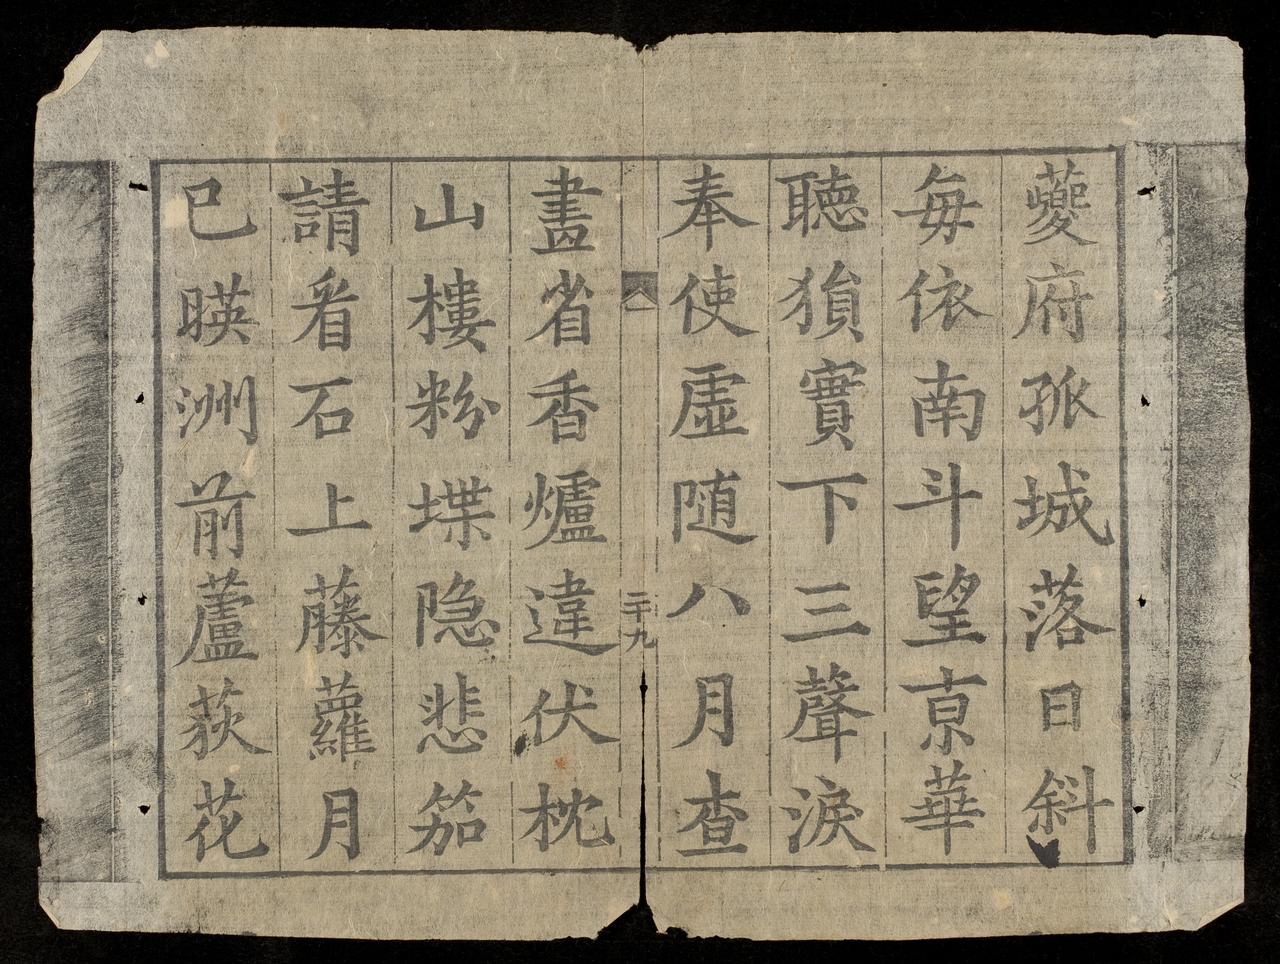 夔府孤城落日斜
每依南斗望京華
聽猿實下三聲淚
奉使虛随八月查
二十九
畫省香爐違伏枕
山樓粉堞隐悲笳
請看石上藤蘿月
已暎洲前蘆荻花